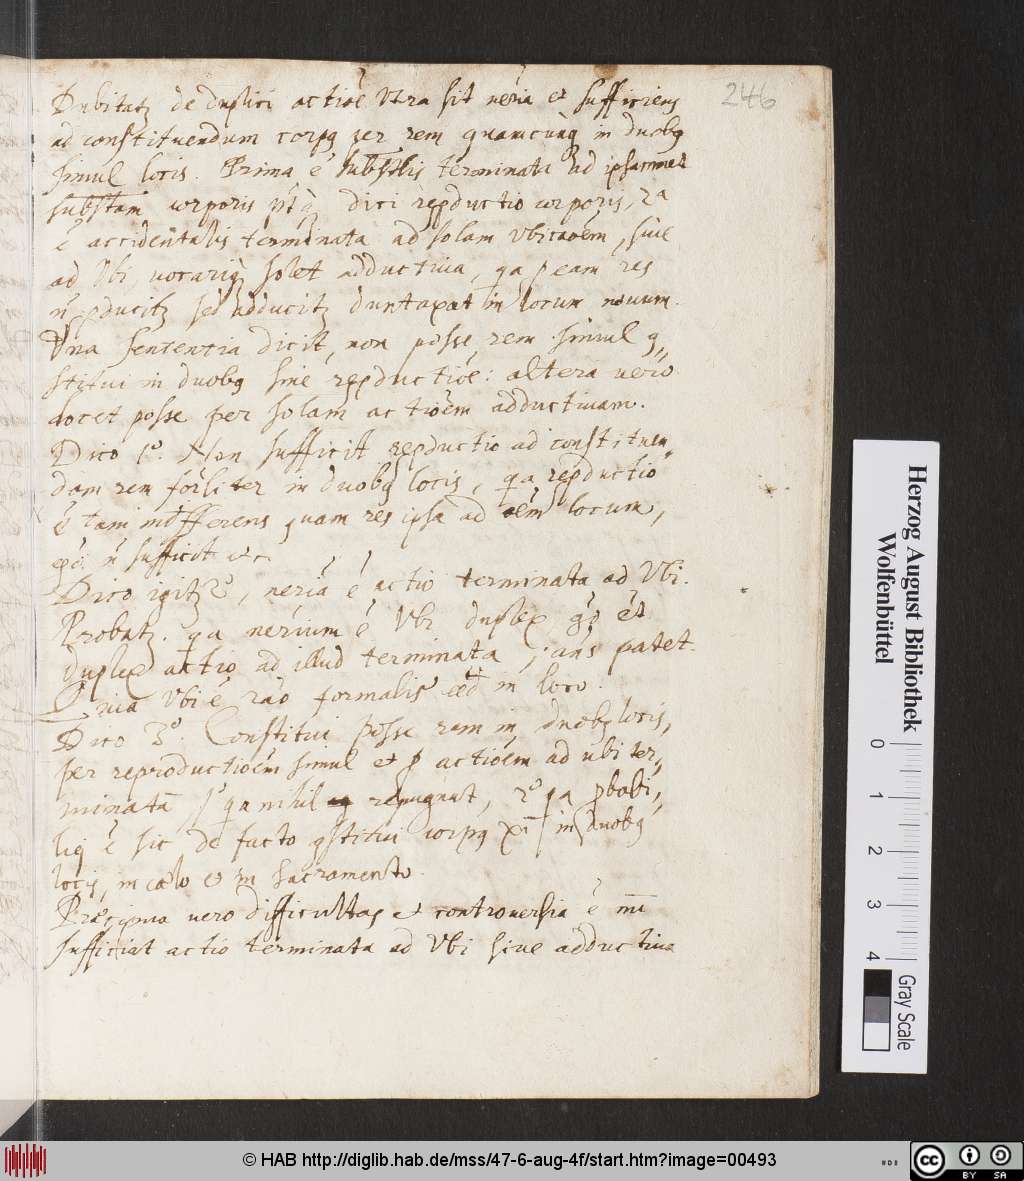 246
Dubitatʒ de duplici actiōe Utra sit nēria et sufficiens
ad constituendum corpꝰ per rem quamcunqꝫ in duobꝰ
simul locis. Prima ē substālis terminata ad ipsammet
substam corporis dici repductio corporis, 2a
ē accidentalis terminata ad solam ubicaoēm, sive
ad Ubi, vocariqꝫ solet adductiva, qa ꝑ eam res
ñ ꝓducitʒ sed adducitʒ duntaxat in locum novum.
Una sententia dicit, non posse rem simul ꝯ„
stitui in duobꝰ sine repductiōe: altera vero
docet posse per solam actioēm adductivam.
Dico 1º. Non sufficit repductio ad constituen„
dam rem fōrliter in duobꝰ locis, qa repductio
ē tam indifferens quam res ipsa ad oēm locum,
ñ sufficit
Dico igitʒ 2º, nēria ē actio terminata ad Ubi.
Probatʒ. qa nērium ē Ubi duplex gō et
duplex actio ad illud terminata; ans patet.
Quia Ubi ē rao formalis in loco.
Dico 3º. Constitui posse rem in duobꝰ locis,
per reproductioēm simul et ꝑ actioēm ad ubi ter„
minatā 1º qa nihil repugnat, 2º qa ꝓbabi„
liꝰ ē sic de facto ꝯstitui corpꝰ Xi in duobꝰ
locis, in cælo et in sacramento.
Præcipua vero difficultas et controversia ē
sufficiat actio terminata ad Ubi sive adductiva
Herzog August Bibliothek
Wolfenbüttel
0 1 2 3 4
Gray Scale
© HAB http://diglib.hab.de/mss/47-6-aug-4f/start.htm?image=00493
cc BY SA